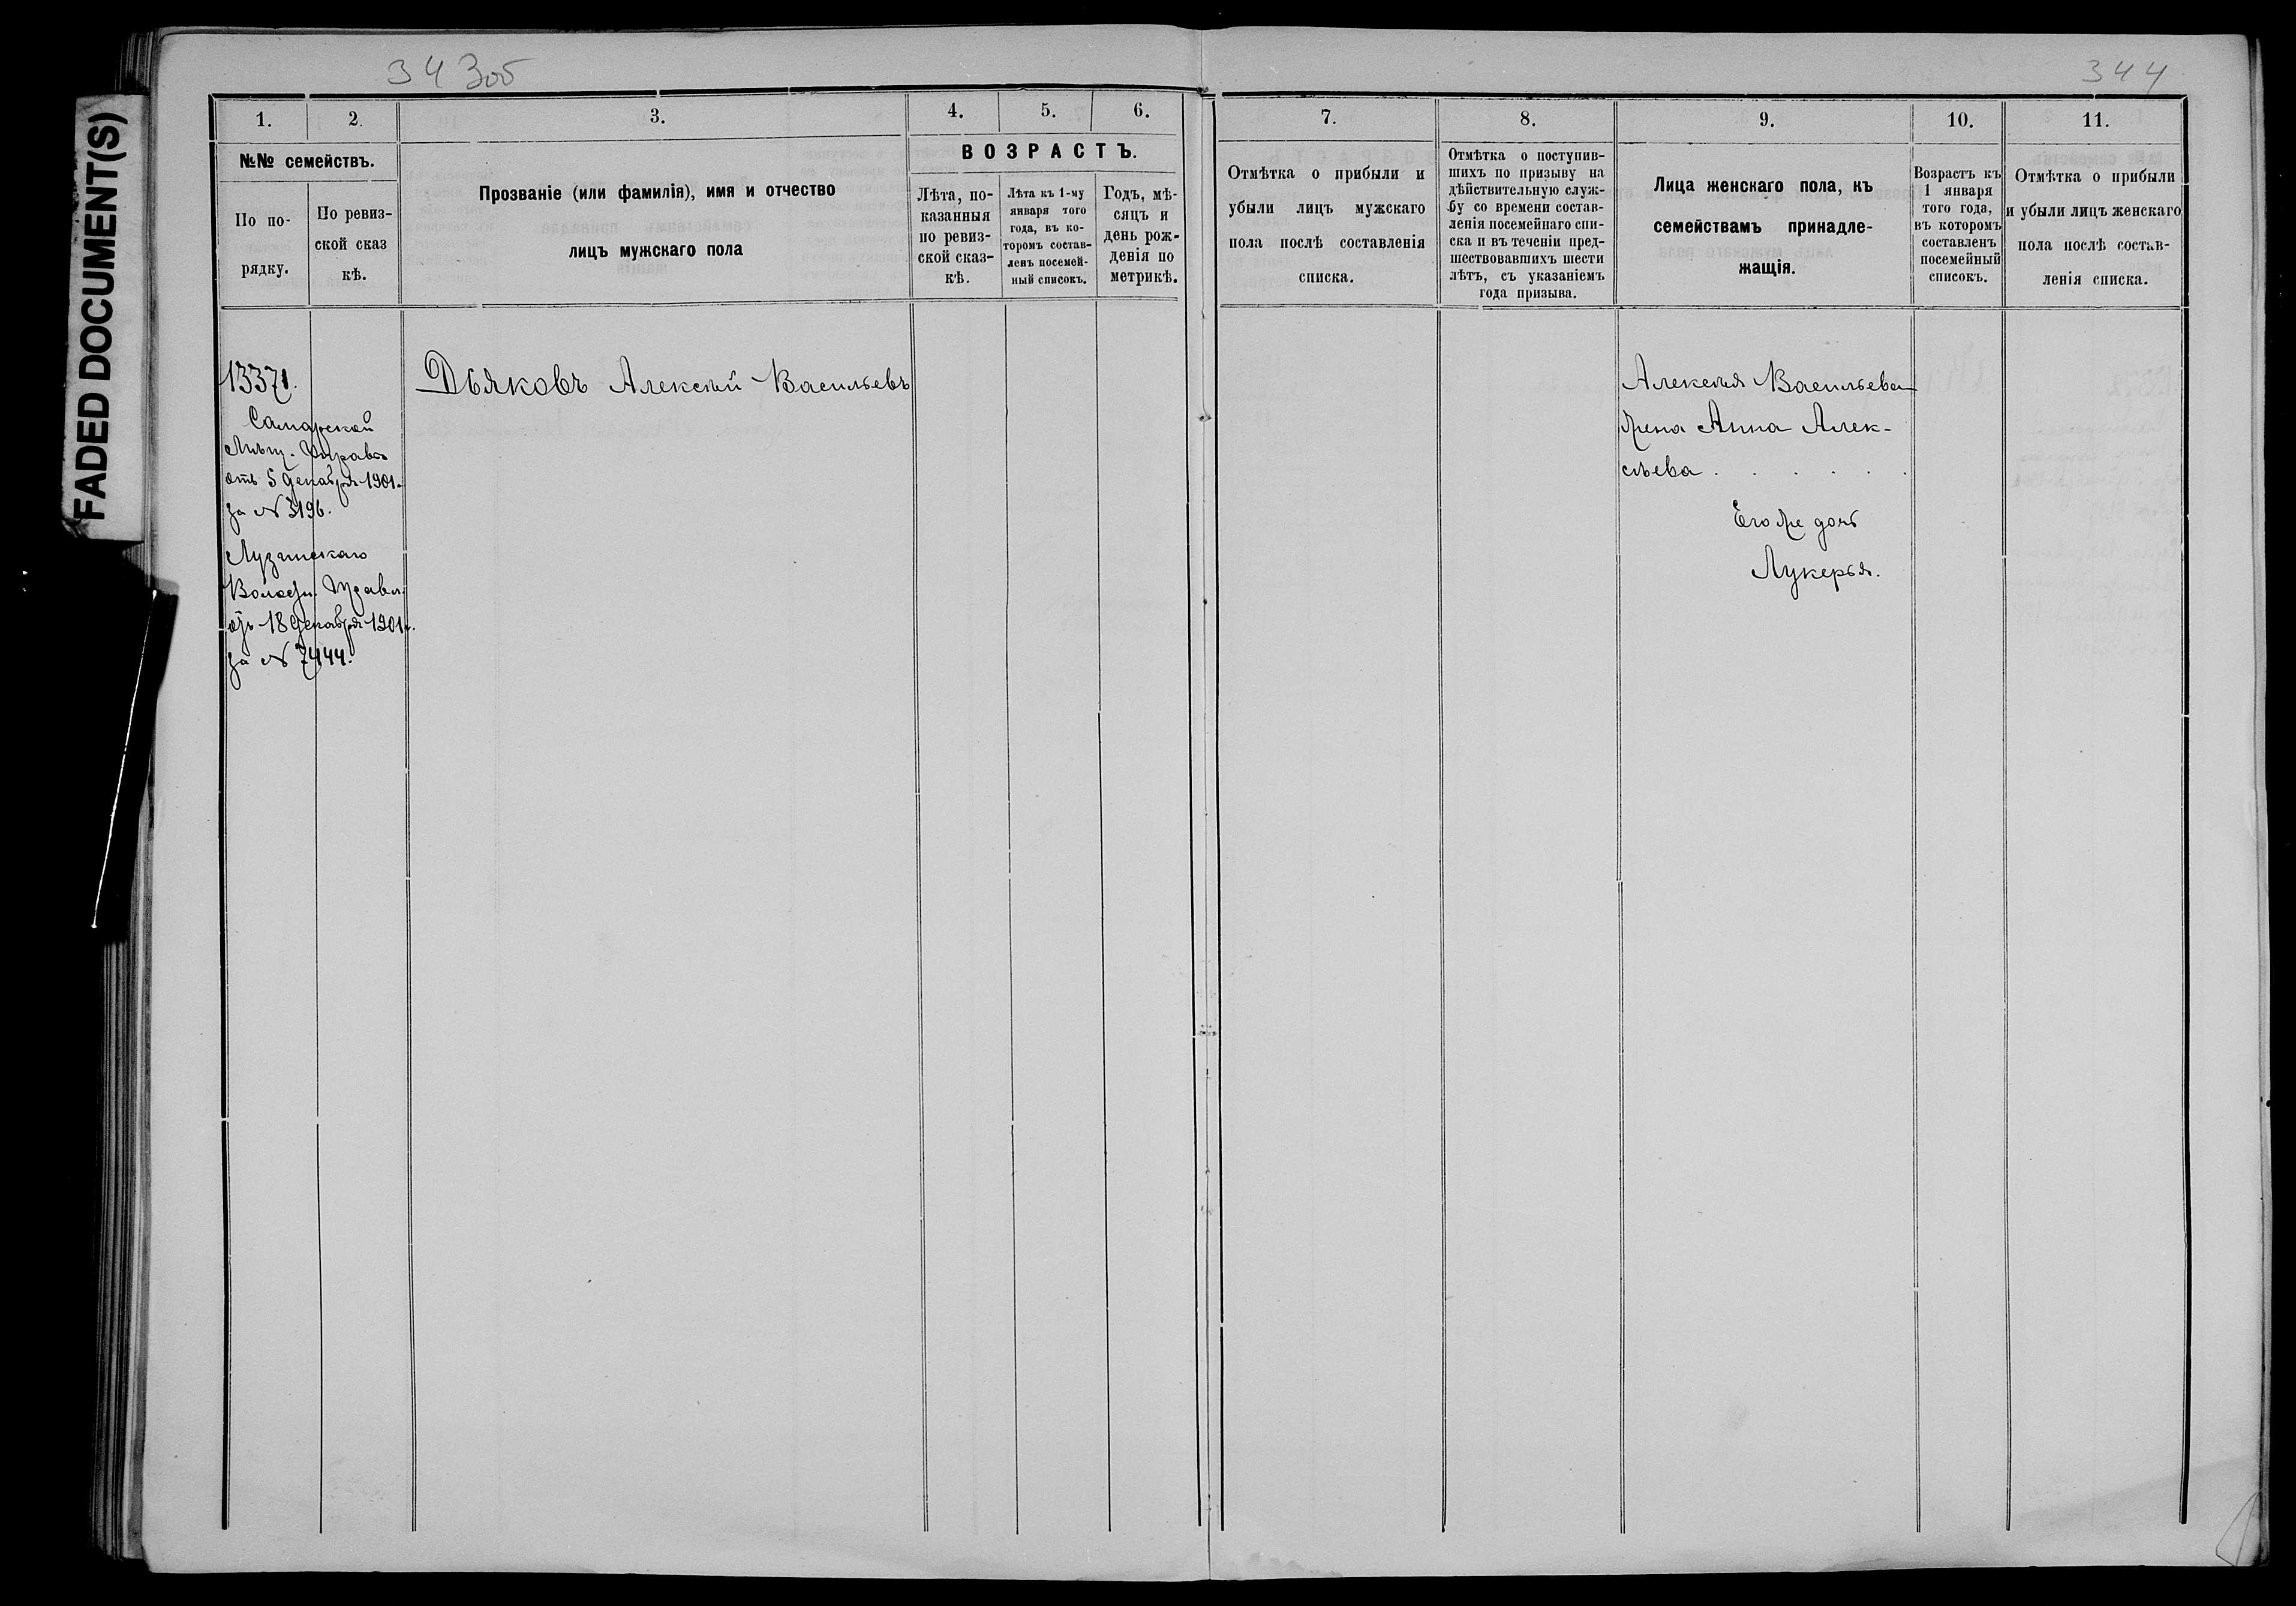 FADED DOCUMENT(S)
343об
344
1. 2. 3. 4. 5. 6.
№№ семействъ.
По по-
рядку.
По ревиз-
ской сказ
кѣ.
Прозваніе (или фамилія), имя и отчество
лицъ мужскаго пола
ВОЗРАСТЪ.
Лѣта, по-
казанныя
по ревиз-
ской сказ-
кѣ.
Лѣта къ 1-му
января того
года, въ ко-
торомъ состав-
ленъ посемей-
ный списокъ.
Годъ, мѣ-
сяцъ и
день рож-
денія по
метрикѣ.
7. 8. 9. 10. 11.
Отмѣтка о прибыли и
убыли лицъ мужскаго
пола послѣ составленія
списка.
Отмѣтка о поступив-
шихъ по призыву на
дѣйствительную служ-
бу со времени состав-
ленія посемейнаго спи-
ска и въ теченіи пред-
шествовавшихъ шести
лѣтъ, съ указаніемъ
года призыва.
Лица женскаго пола, къ
семействамъ принадле-
жащія.
Возрастъ къ
1 января
того года,
въ которомъ
составленъ
посемейный
списокъ.
Отмѣтка о прибыли
и убыли лицъ женскаго
пола послѣ состав-
ленія списка.
13371.
Самарской
Мѣщ. Управы
отъ 5 декабря 1901.
за № 3196.
Волостн. Правл.
отъ 18 декабря 1901 г.
за № 7444.
Дьяковъ Алексѣй Васильевъ
Алексѣя Васильева
жена Анна Алек-
сѣева . . . . . .
Его же дочь
Лукерья.